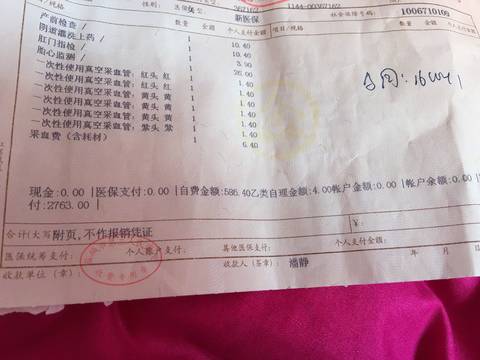 新医保
社会保障号码: 1006710109
/规格 数量 金额 个人支付金额 项目/规格 数量 金额 个人支付金额
产前检查/ 1 10.40
阴道灌洗上药/ 1 10.40
肛门指检/ 1 3.90
胎心监测/ 1 26.00
一次性使用真空采血管: 红头 红 1 1.40
一次性使用真空采血管: 红头 红 1 1.40
一次性使用真空采血管: 黄头 黄 1 1.40
一次性使用真空采血管: 黄头 黄 1 1.40
一次性使用真空采血管: 紫头 紫 1 1.40
采血费(含耗材) 1 6.40
现金:0.00 |医保支付:0.00 |自费金额:586.40乙类自理金额:4.00帐户金额:0.00 |帐户余额:0.00
付:2763.00
合计(大写 附页, 不作报销凭证 ¥:
医保统筹支付: 个人账户支付: 其他医保支付: 个人支付金额:
收款单位(章): 收款人(签章) 潘静 年 月